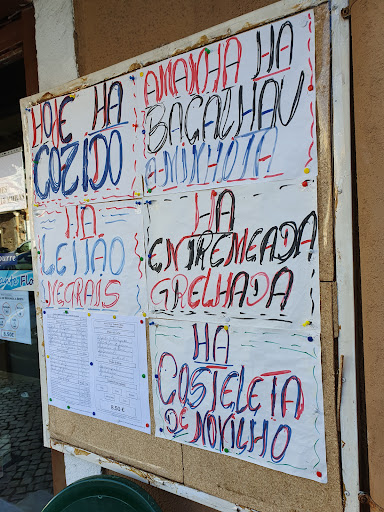 HOJE HÁ
COZIDO
AMANHÃ HÁ
BACALHAU
A MINHOTA
HÁ
LEITÃO
NEGRAIS
HÁ
ENTREMEADA
GRELHADA
HÁ
COSTELETA
DE NOVILHO
8,50€